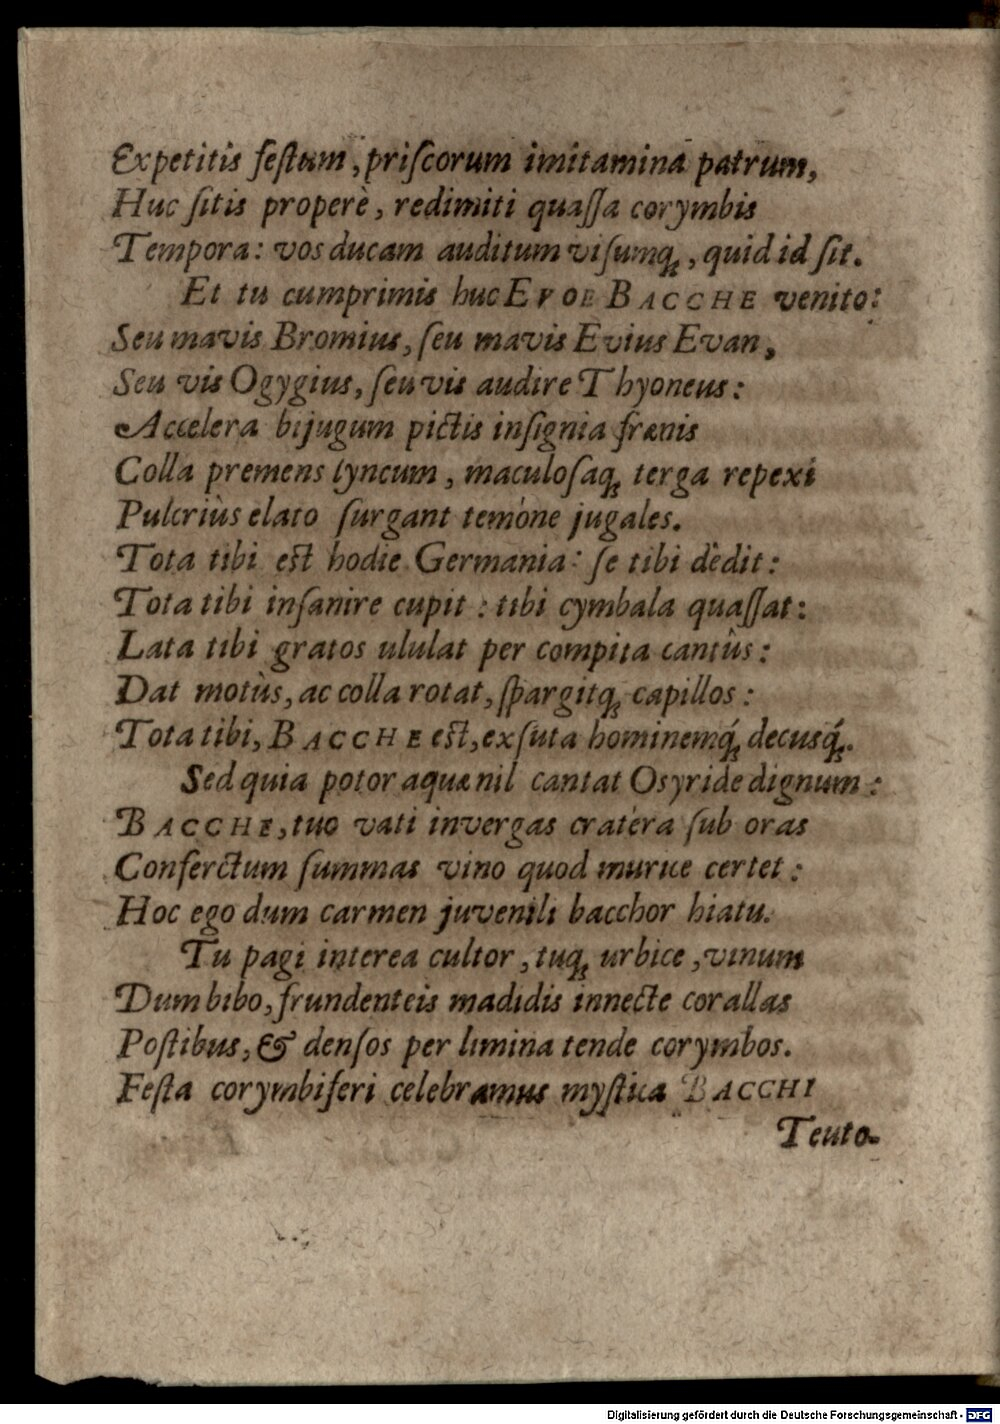 Expetitis feſtum, priſcorum imitamina patrum,
Huc ſitis properè, redimiti quaſſa corymbis
Tempora: vos ducam auditum viſumq́;, quid id ſit.
Et tu cumprimis huc EVOE BACCHE venito:
Seu mavis Bromius, ſeu mavis Evius Evan,
Seu vis Ogygius, ſeu vis audire Thyoneus:
Accelera bijugum pictis inſignia frænis
Colla premens lyncum, maculoſaq; terga repexi
Pulcriùs elato ſurgant temóne jugales.
Tota tibi eſt hodie Germania: ſe tibi dèdit:
Tota tibi inſanire cupit: tibi cymbala quaſſat:
Lata tibi gratos ululat per compita cantûs:
Dat motùs, ac colla rotat, ſpargitq; capillos:
Tota tibi, BACCHE eſt, exſuta hominemq́; decusq́;.
Sed quia potor aquæ nil cantat Oſyride dignum:
BACCHE, tuo vati invergas cratéra ſub oras
Confertum ſummas vino quod murice certet:
Hoc ego dum carmen juvenili bacchor hiatu.
Tu pagi interea cultor, tuq; urbice, vinum
Dum bibo, frundenteis madidis innecte corallas
Poſtibus, & denſos per limina tende corymbos.
Feſta corymbiferi celebramus myſtica BACCHI
Teuto-
Digitalisierung gefördert durch die Deutsche Forschungsgemeinschaft - DFG